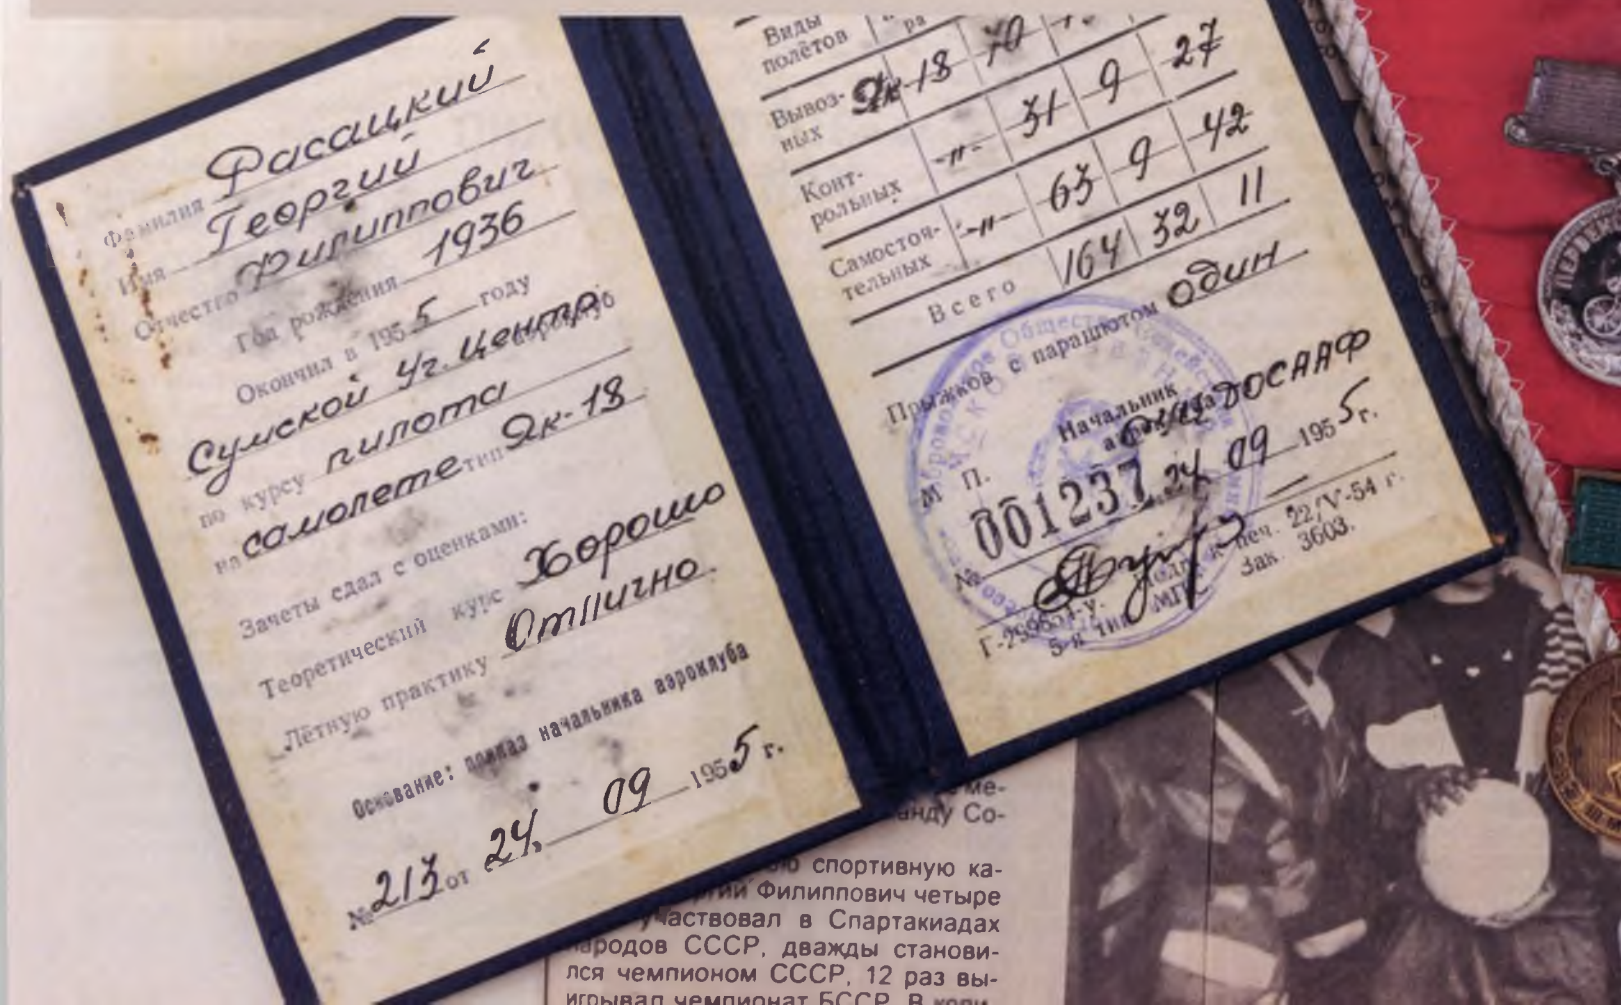 Фамилия Расацкий
Имя Георгий
Отчество Филиппович
Год рождения 1936
Окончил в 1955 году
Сумской уч. центр аэроклуб
по курсу пилота
на самолете тип Як-18
Зачеты сдал с оценками:
Теоретический курс Хорошо
Лётную практику Отлично.
Основание: приказ начальника аэроклуба
№ 213 от 24. 09 1955 г.
Виды полётов
Вывозных Як-18 70
Контрольных -"- 31 9 27
Самостоятельных -"- 63 9 42
Всего 164 32 11
Прыжков с парашютом один
Начальник
ДОСААФ
М П. 24 09 1955 г.
№ 001237
к печ. 22/V-54 г.
Зак. 3603.
спортивную ка-
Филиппович четыре
участвовал в Спартакиадах
народов СССР, дважды станови-
лся чемпионом СССР, 12 раз вы-
игрывал чемпионат БССР. В